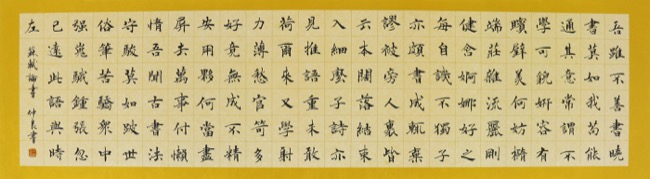 吾雖不善書曉
書莫如我苟能
通其意常謂不
學可貌妍容有
矉璧美何妨橢
端莊雜流麗剛
健含婀娜好之
每自譏不獨子
亦頗書成輒棄
謬被旁人裹皆
云本闊落結束
入細麼子詩亦
見推語重未敢
荷爾來又學射
力薄愁官笴多
好竟無成不精
安用夥何當盡
屏去萬事付懶
惰吾聞古書法
守駿莫如跛世
俗筆苦驕衆中
強嵬騀鍾張忽
已遠此語與時
左
蘇軾論書 仲良書